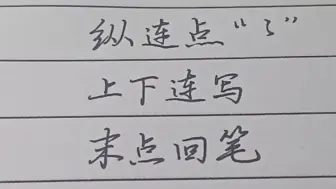 纵连点“氵”
上下连写
末点回笔